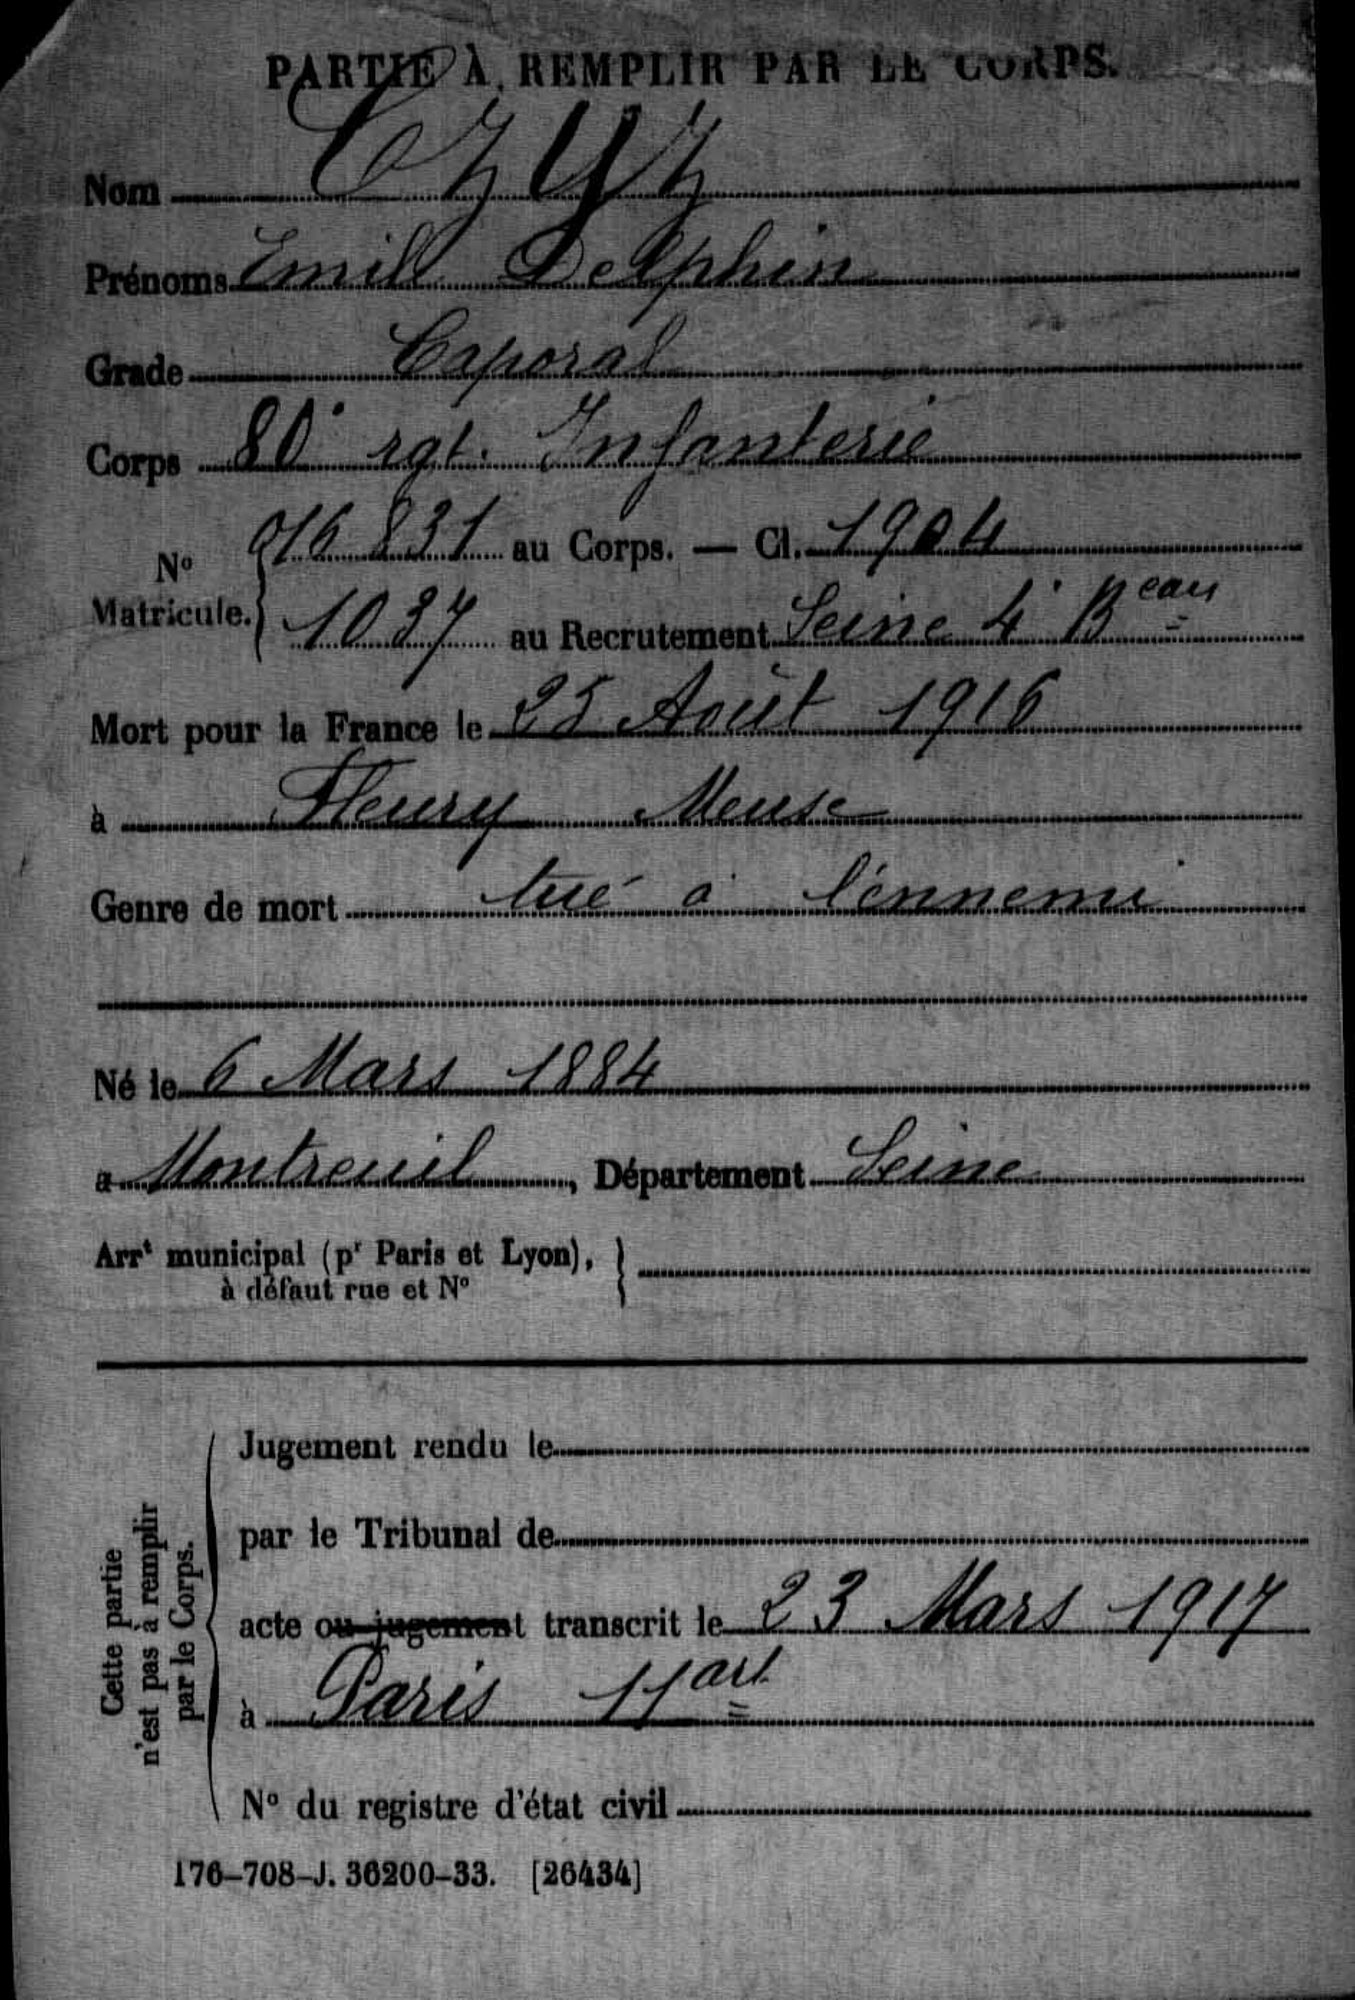 PARTIE À REMPLIR PAR LE CORPS.
Nom Czyz
Prénoms Emile Delphin
Grade Caporal
Corps 80e rgt. Infanterie
No Matricule. { 016 831 au Corps. — Cl. 1904
1037 au Recrutement Seine 4e Beau
Mort pour la France le 25 Août 1916
à Fleury Meuse
Genre de mort tué à l'énnemi
Né le 6 Mars 1884
à Montreuil, Département Seine
Arrt municipal (pr Paris et Lyon), }
à défaut rue et No
Cette partie
n'est pas à remplir
par le Corps.
Jugement rendu le
par le Tribunal de
acte ou jugement transcrit le 23 Mars 1917
à Paris 11 art
No du registre d'état civil
176-708-J. 36200-33. [26434]